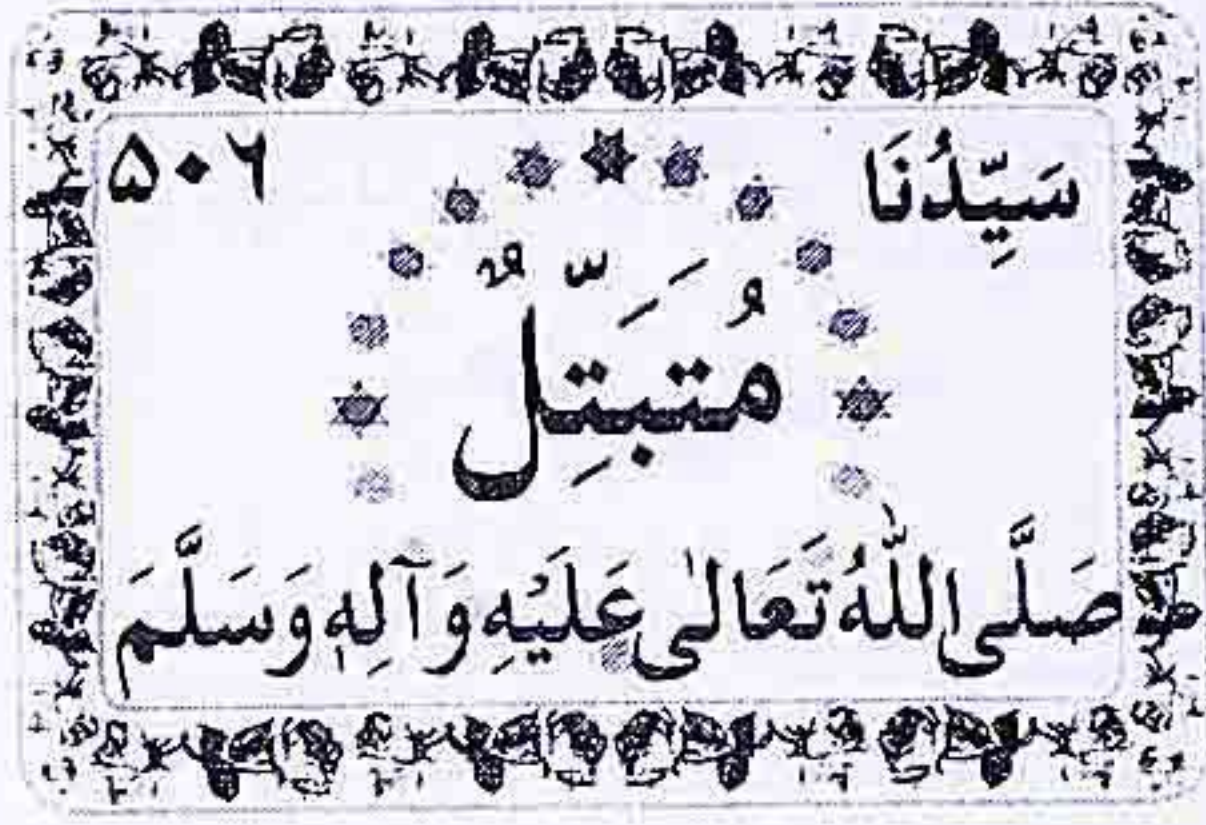 سَيِّدُنَا ۵۰۶
مُتَبَتِّلٌ
صَلَّی اللّٰهُ تَعَالٰی عَلَيْهِ وَآلِهٖ وَسَلَّمَ